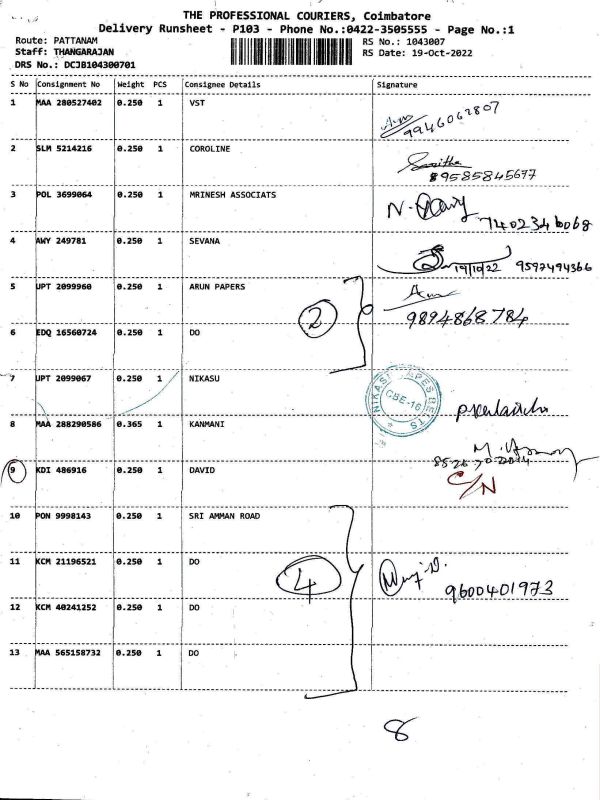 THE PROFESSIONAL COURIERS, Coimbatore
Delivery Runsheet - P103 - Phone No.:0422-3505555 - Page No.:1
Route: PATTANAM RS No.: 1043007
Staff: THANGARAJAN RS Date: 19-Oct-2022
DRS No.: DCJB104300701
S No Consignment No Weight PCS Consignee Details Signature
1 MAA 280527402 0.250 1 VST
9946062807
2 SLM 5214216 0.250 1 COROLINE
9585845677
3 POL 3699064 0.250 1 MRINESH ASSOCIATS
7402346068
4 AWY 249781 0.250 1 SEVANA
19/10/22 9597494366
5 UPT 2099960 0.250 1 ARUN PAPERS
2 9894868784
6 EDQ 16560724 0.250 1 DO
7 UPT 2099067 0.250 1 NIKASU
CBE-16
8 MAA 288290586 0.365 1 KANMANI
9 KDI 486916 0.250 1 DAVID
C/N
10 PON 9998143 0.250 1 SRI AMMAN ROAD
11 KCM 21196521 0.250 1 DO
4 9600401973
12 KCM 40241252 0.250 1 DO
13 MAA 565158732 0.250 1 DO
8